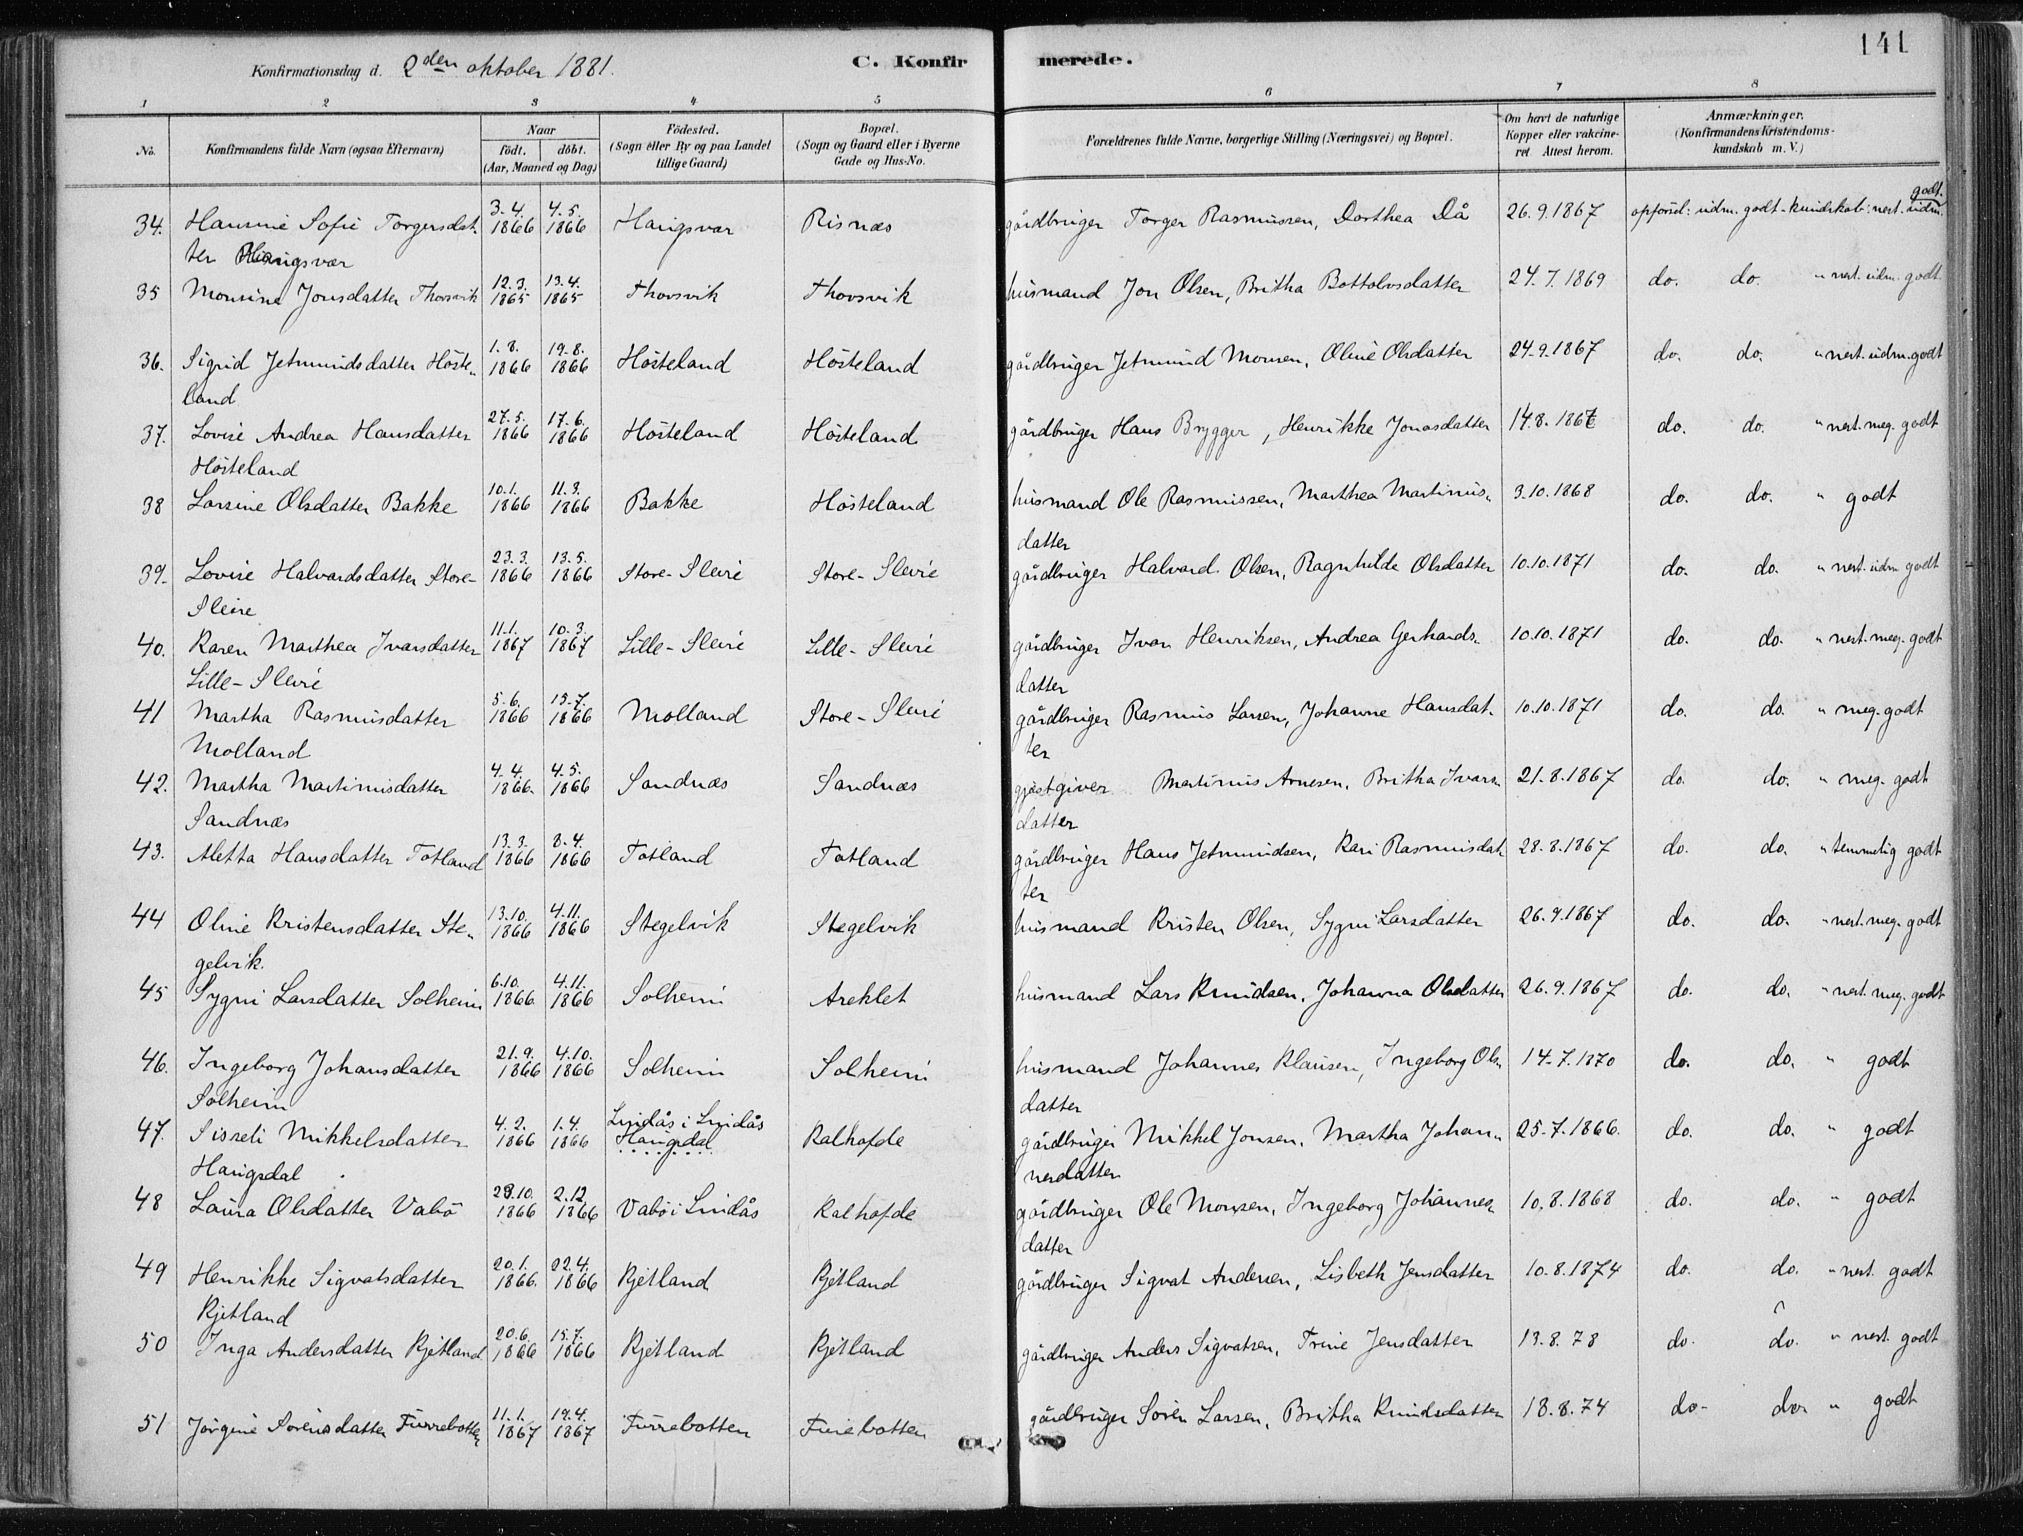 141
Konfirmationsdag d. 2den oktober 1881. C. Konfir merede.
1 2 3 4 5 6 7 8
No. Konfirmandens fulde Navn (ogsaa Efternavn) Naar født. døbt. (Aar, Maaned og Dag) Fødested. (Sogn eller By og paa Landet tillige Gaard) Bopæl. (Sogn og Gaard eller i Byerne Gade og Hus-No. Forældrenes fulde Navne, borgerlige Stilling (Næringsvei) og Bopæl. Om havt de naturlige Kopper eller vakcineret Attest herom. Anmærkninger. (Konfirmandens Kristendomskundskab m. V.)
34. Hansine Sofie Torgersdat- 3.4. 1866 4.5. 1866 Haugsvær Risnæs gårdbruger Torger Rasmussen, Dorthea Då 26.9.1867 opførsel: udm. godt - kundskab: nest. udm. godt.
ter Haugsvær
35 Monsine Jonsdatter Thorsvik 12.3. 1865 13.4. 1865 Thorsvik Thorsvik husmand Jon Olsen, Britha Bottolvsdatter 24.7.1869 do. do. " nest. udm. godt
36. Sigrid Jetmundsdatter Høste- 1.8. 1866 19.8. 1866 Høsteland Høsteland gårdbruger Jetmund Monsen, Oline Olsdatter 24.9.1867 do. do. " nest. udm. godt
land
37. Lovise Andrea Hansdatter 27.5. 1866 17.6. 1866 Høsteland Høsteland gårdbruger Hans Brygger, Henrikke Jonasdatter 14.8.1867 do. do. " nest. meg. godt
Høsteland
38 Larsine Olsdatter Bakke 10.1. 1866 11.3. 1866 Bakke Høsteland husmand Ole Rasmussen, Marthea Martinus- 3.10.1868 do. do. " godt
datter
39. Lovise Halvardsdatter Store- 23.3. 1866 13.5. 1866 Store-Sleire Store-Sleire gårdbruger Halvard Olsen, Ragnhilde Olsdatter 10.10.1871 do. do. " nest. udm. godt
Sleire
40. Karen Marthea Ivarsdatter 11.1. 1867 10.3. 1867 Lille-Sleire Lille-Sleire gårdbruger Ivar Henriksen, Andrea Gerhards- 10.10.1871 do. do. " nest. meg. godt
Lille-Sleire datter
41 Martha Rasmusdatter 5.6. 1866 15.7. 1866 Molland Store-Sleire gårdbruger Rasmus Larsen, Johanne Hansdat- 10.10.1871 do. do. " meg. godt
Molland ter
42. Martha Martinusdatter 4.4. 1866. 4.5. 1866 Sandnæs Sandnæs gjæstgiver Martinus Arnesen, Britha Ivars- 21.8.1867 do. do. " meg. godt
Sandnæs datter
43. Aletta Hansdatter Totland 13.3. 1866 8.4. 1866 Totland Totland gårdbruger Hans Jetmundsen, Kari Rasmusdat- 28.8.1867 do. do. " temmelig godt
ter
44 Oline Kristensdatter Ste- 13.10. 1866 4.11. 1866 Stegelvik Stegelvik husmand Kristen Olsen, Sygni Larsdatter 26.9.1867 do. do. " nest. meg. godt
gelvik.
45 Sygni Larsdatter Solheim 6.10. 1866 4.11. 1866 Solheim Areklet husmand Lars Knudsen, Johanna Olsdatter 26.9.1867 do. do. " nest. meg. godt
46. Ingeborg Johansdatter 21.9. 1866 4.10. 1866 Solheim Solheim husmand Johannes Klausen, Ingeborg Ols- 14.7.1870 do. do. " godt
Solheim datter
47. Sisseli Mikkelsdatter 4.2. 1866 1.4. 1866 Lindås i Lindås Haugsdal Kalhofde gårdbruger Mikkel Jonsen, Martha Johan- 25.7.1866. do. do. " godt
Haugsdal nesdatter
48 Laura Olsdatter Vabø 29.10. 1866 2.12 1866 Vabø i Lindås Kalhofde gårdbruger Ole Monsen, Ingeborg Johannes- 10.8.1868 do. do. " godt
datter
49 Henrikke Sigvatsdatter 20.1. 1866. 22.4. 1866 Kjetland Kjetland gårdbruger Sigvat Andersen, Lisbeth Jensdatter 10.8.1874 do. do. " nest. godt
Kjetland
50 Inga Andersdatter Kjetland 20.6. 1866 15.7. 1866 Kjetland Kjetland gårdbruger Anders Sigvatsen, Trine Jensdatter 13.8.78 do. do. " nest. godt
51 Jørgine Sørensdatter Furrebotten 11.1. 1867 19.4. 1867 Furrebotten Furebotten gårdbruger Søren Larsen, Britha Knudsdatter 18.8.74 do. do. " godt